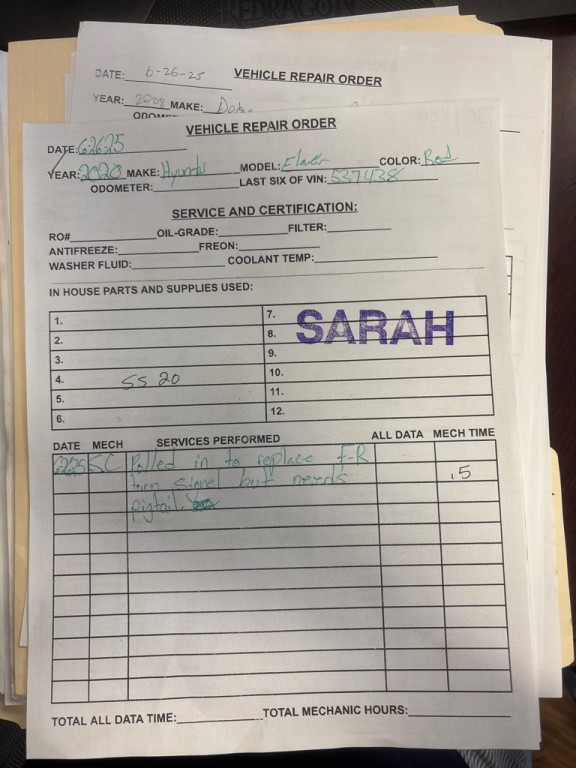 REDRAGON
DATE: 6-26-25 VEHICLE REPAIR ORDER
YEAR: 2008 MAKE: Dod
VEHICLE REPAIR ORDER
DATE: 6-26-25
YEAR: 2020 MAKE: Hyundai MODEL: COLOR: Red
ODOMETER: LAST SIX OF VIN: 537438
SERVICE AND CERTIFICATION:
RO# OIL-GRADE: FILTER:
ANTIFREEZE: FREON:
WASHER FLUID: COOLANT TEMP:
IN HOUSE PARTS AND SUPPLIES USED:
1. 7.
2. 8. SARAH
3. 9.
4. SS 20 10.
5. 11.
6. 12.
DATE MECH SERVICES PERFORMED ALL DATA MECH TIME
62625 SC Pulled in to replace F-R
turn signel but needs .5
pigtail
TOTAL ALL DATA TIME: TOTAL MECHANIC HOURS: